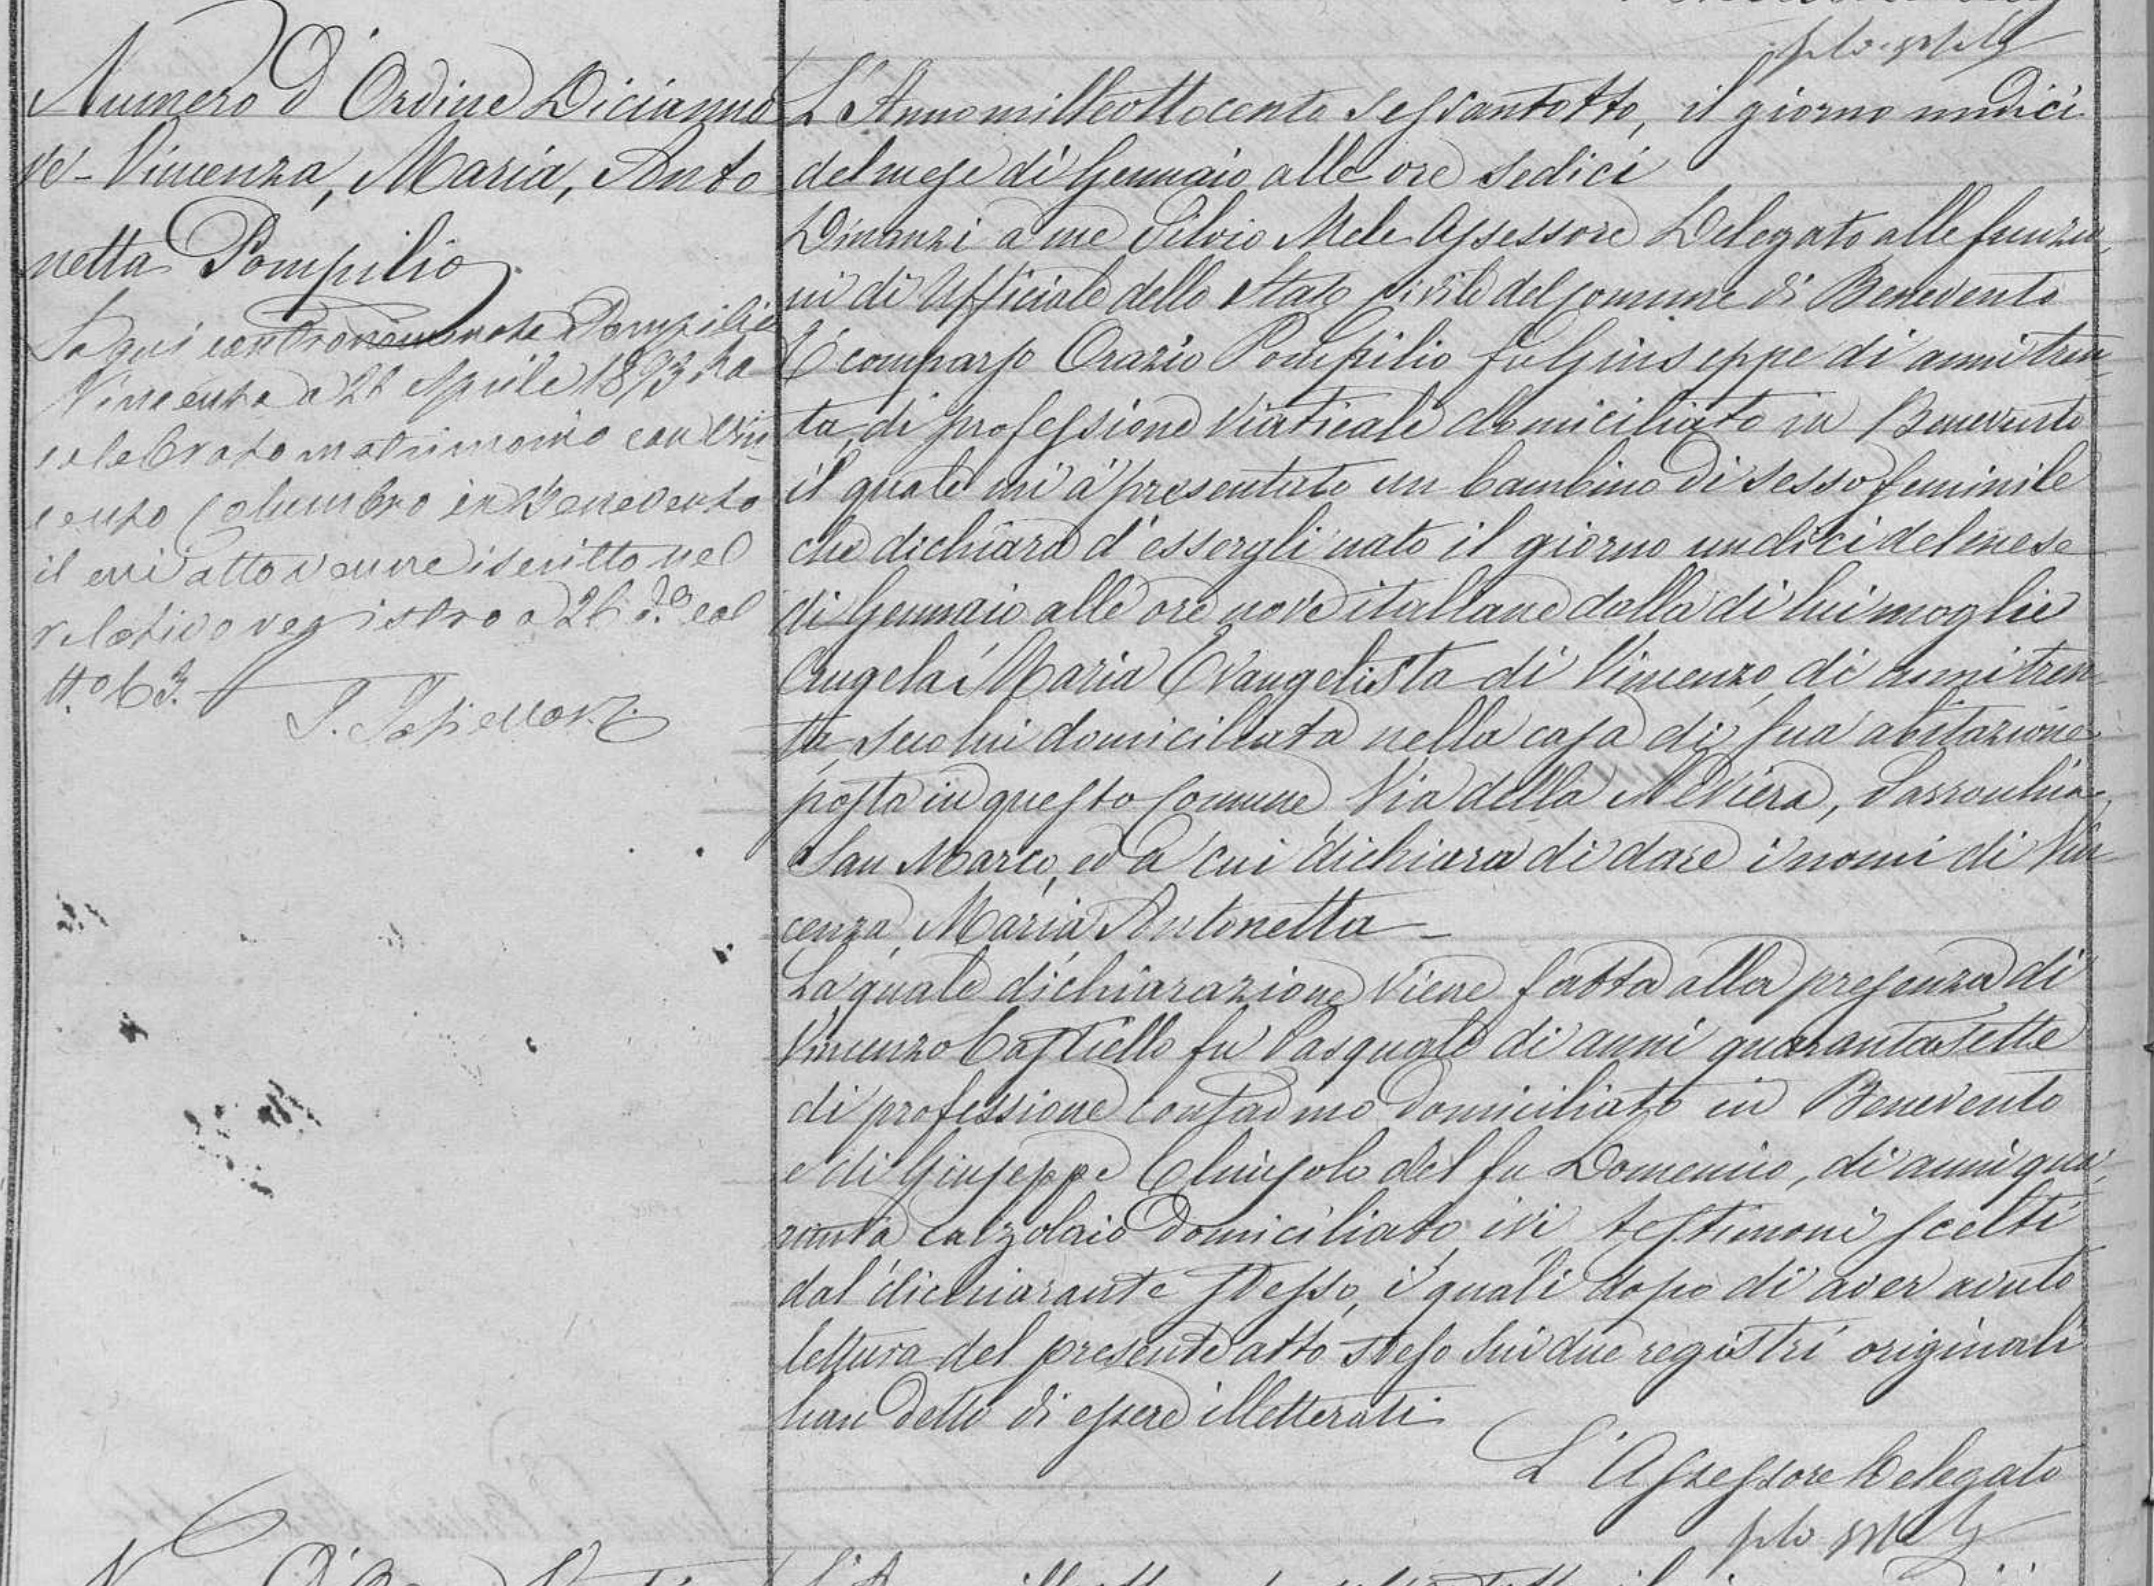 Numero d'Ordine Dicianno
ve - Vincenza, Maria, Anto
netta Pompilio
La qui contronominata Pompilio
Vincenza a 26 Aprile 1893 ha
celebrato matrimonio con Vin
cenzo Columbro in Benevento
il cui atto venne iscritto nel
relativo registro a 26 do col
No 63.
L'Anno milleottocento sessantotto, il giorno undici
del mese di Gennaio alle ore sedici
Dinanzi a me Silvio Mele Assessore Delegato alle funzio
ni di Ufficiale dello Stato Civile del Comune di Benevento
È comparso Orazio Pompilio fu Giuseppe di anni tren
ta, di professione viaticale domiciliato in Benevento
il quale mi à presentato un bambino di sesso feminile
che dichiara d'essergli nato il giorno undici del mese
di Gennaio alle ore nove italiane dalla di lui moglie
Angela Maria Evangelista di Vincenzo di anni tren
ta, seco lui domiciliata nella casa di sua abitazione
posta in questo Comune Via della Neviera, Parrocchia
San Marco, ed a cui dichiara di dare i nomi di Vin
cenza Maria Antonetta -
La quale dichiarazione viene fatta alla presenza di
Vincenzo Castiello fu Pasquale di anni quarantasette
di professione contadino domiciliato in Benevento
e di Giuseppe del fu Domenico, di anni qua
ranta calzolaio domiciliato ivi testimoni scelti
dal dichiarante stesso, i quali dopo di aver avuto
lettura del presente atto steso sui due registri originali
han detto di essere illetterati
L'Assessore Delegato